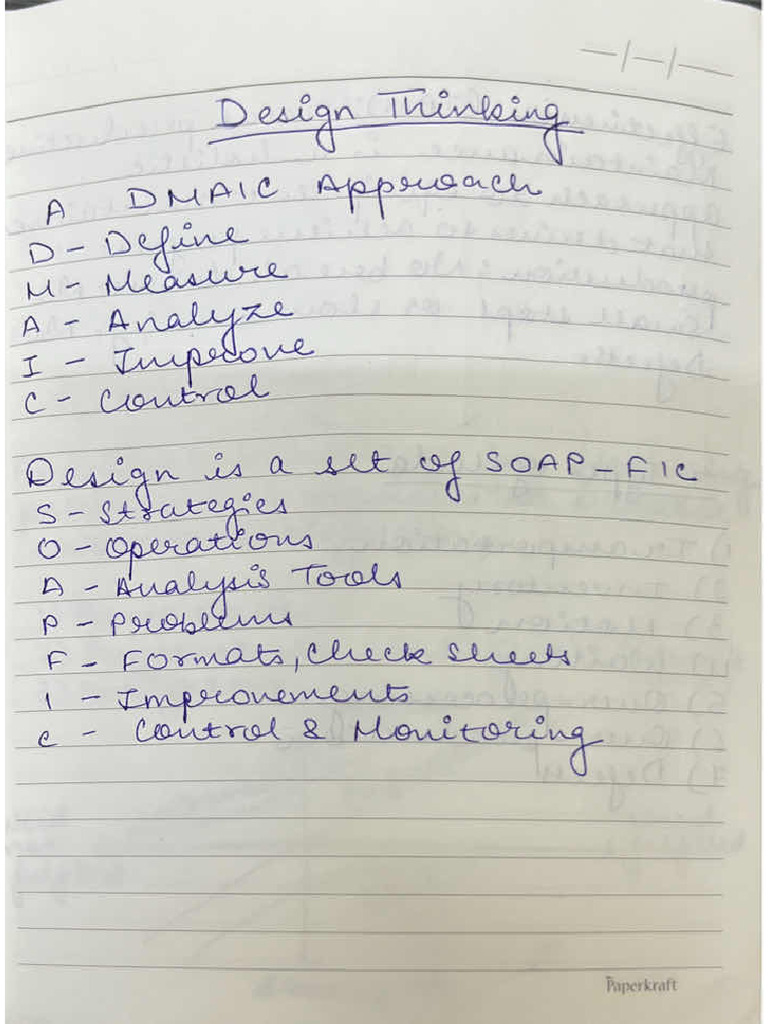 —/—/—
Design Thinking
A DMAIC Approach
D - Define
M - Measure
A - Analyze
I - Improve
C - Control
Design is a set of SOAP-FIC
S - Strategies
O - Operations
A - Analysis Tools
P - Problems
F - Formats, Check Sheets
I - Improvements
C - Control & Monitoring
Paperkraft